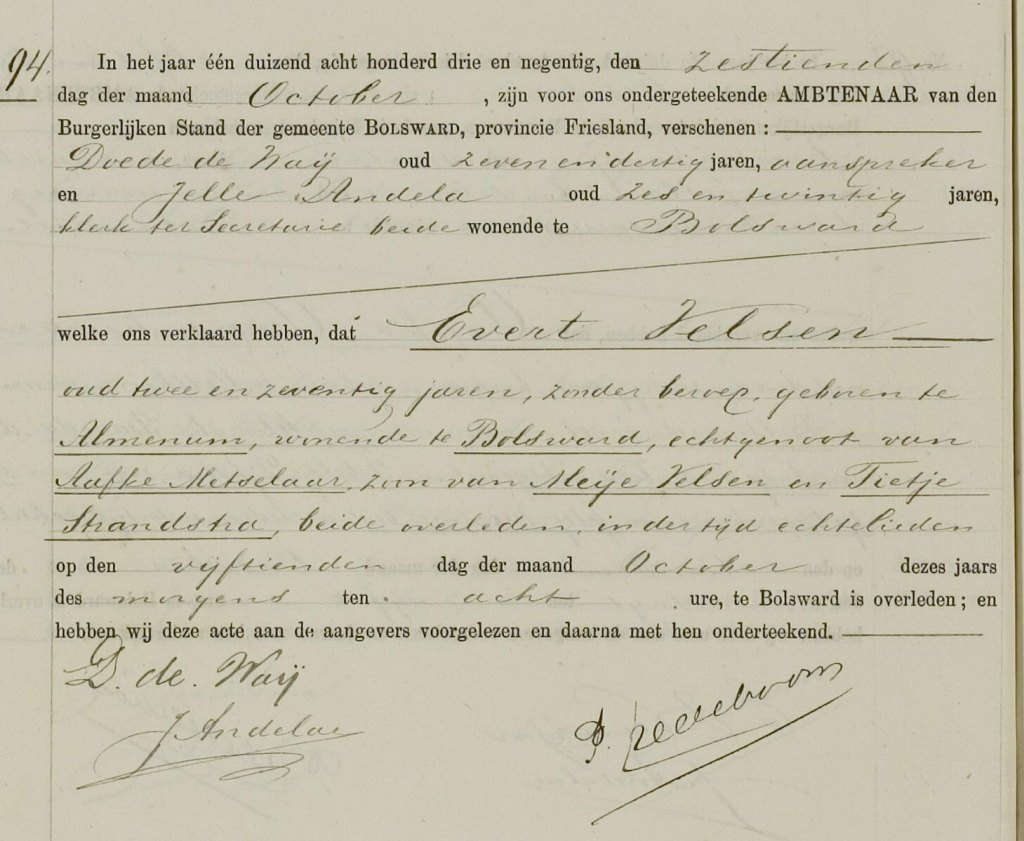 94.
In het jaar één duizend acht honderd drie en negentig, den zestienden
dag der maand October , zijn voor ons ondergeteekende AMBTENAAR van den
Burgerlijken Stand der gemeente BOLSWARD, provincie Friesland, verschenen :
Doede de Waij oud zeven en dertig jaren, aanspreker
en Jelle Andela oud zes en twintig jaren,
klerk ter Secretarie beide wonende te Bolsward
welke ons verklaard hebben, dat Evert Velsen
oud twee en zeventig jaren, zonder beroep, geboren te
Almenum, wonende te Bolsward, echtgenoot van
Aafke Metselaar, zoon van Meije Velsen en Tietje
Strandstra, beide overleden, in der tijd echtelieden
op den vijftienden dag der maand October dezes jaars
des morgens ten acht ure, te Bolsward is overleden ; en
hebben wij deze acte aan de aangevers voorgelezen en daarna met hen onderteekend.
D. de Waij
J Andelae
P. Redeboom